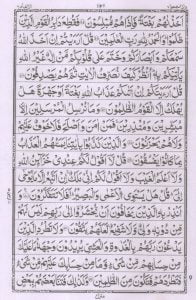 اَخَذْنٰهُمْ بَغْتَةً فَاِذَا هُمْ مُّبْلِسُوْنَ ۝ فَقُطِعَ دَابِرُ الْقَوْمِ الَّذِيْنَ
ظَلَمُوْا ؕ وَالْحَمْدُ لِلّٰهِ رَبِّ الْعٰلَمِيْنَ ۝ قُلْ اَرَءَيْتُمْ اِنْ اَخَذَ اللّٰهُ
سَمْعَكُمْ وَاَبْصَارَكُمْ وَخَتَمَ عَلٰى قُلُوْبِكُمْ مَّنْ اِلٰهٌ غَيْرُ اللّٰهِ
يَاْتِيْكُمْ بِهٖ ؕ اُنْظُرْ كَيْفَ نُصَرِّفُ الْاٰيٰتِ ثُمَّ هُمْ يَصْدِفُوْنَ ۝
قُلْ اَرَءَيْتَكُمْ اِنْ اَتٰىكُمْ عَذَابُ اللّٰهِ بَغْتَةً اَوْ جَهْرَةً هَلْ
يُهْلَكُ اِلَّا الْقَوْمُ الظّٰلِمُوْنَ ۝ وَمَا نُرْسِلُ الْمُرْسَلِيْنَ اِلَّا
مُبَشِّرِيْنَ وَمُنْذِرِيْنَ ۚ فَمَنْ اٰمَنَ وَاَصْلَحَ فَلَا خَوْفٌ عَلَيْهِمْ
وَلَا هُمْ يَحْزَنُوْنَ ۝ وَالَّذِيْنَ كَذَّبُوْا بِاٰيٰتِنَا يَمَسُّهُمُ الْعَذَابُ
بِمَا كَانُوْا يَفْسُقُوْنَ ۝ قُلْ لَّاۤ اَقُوْلُ لَكُمْ عِنْدِيْ خَزَآئِنُ اللّٰهِ
وَلَاۤ اَعْلَمُ الْغَيْبَ وَلَاۤ اَقُوْلُ لَكُمْ اِنِّيْ مَلَكٌ ۚ اِنْ اَتَّبِعُ اِلَّا مَا يُوْحٰۤى
اِلَيَّ ؕ قُلْ هَلْ يَسْتَوِى الْاَعْمٰى وَالْبَصِيْرُ ؕ اَفَلَا تَتَفَكَّرُوْنَ ۝ وَ
اَنْذِرْ بِهِ الَّذِيْنَ يَخَافُوْنَ اَنْ يُّحْشَرُوْۤا اِلٰى رَبِّهِمْ لَيْسَ لَهُمْ
مِّنْ دُوْنِهٖ وَلِيٌّ وَّلَا شَفِيْعٌ لَّعَلَّهُمْ يَتَّقُوْنَ ۝ وَلَا تَطْرُدِ الَّذِيْنَ
يَدْعُوْنَ رَبَّهُمْ بِالْغَدٰوةِ وَالْعَشِيِّ يُرِيْدُوْنَ وَجْهَهٗ ؕ مَا عَلَيْكَ
مِنْ حِسَابِهِمْ مِّنْ شَيْءٍ وَّمَا مِنْ حِسَابِكَ عَلَيْهِمْ مِّنْ شَيْءٍ
فَتَطْرُدَهُمْ فَتَكُوْنَ مِنَ الظّٰلِمِيْنَ ۝ وَكَذٰلِكَ فَتَنَّا بَعْضَهُمْ بِبَعْضٍ